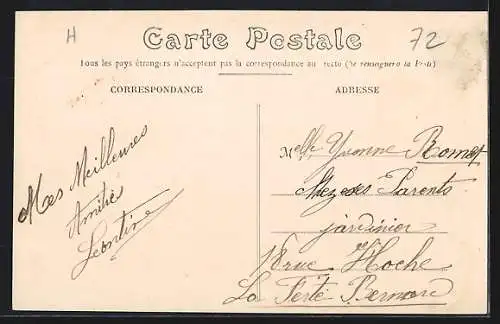 H
Carte Postale
72
Tous les pays étrangers n'acceptent pas la correspondance au recto (Se renseigner à la Poste)
CORRESPONDANCE
ADRESSE
Mes Meilleures
Amitiés
Léontine
Melle Yvonne Romet
Chez ses Parents
jardinier
rue Hoche
La Ferté Bernard